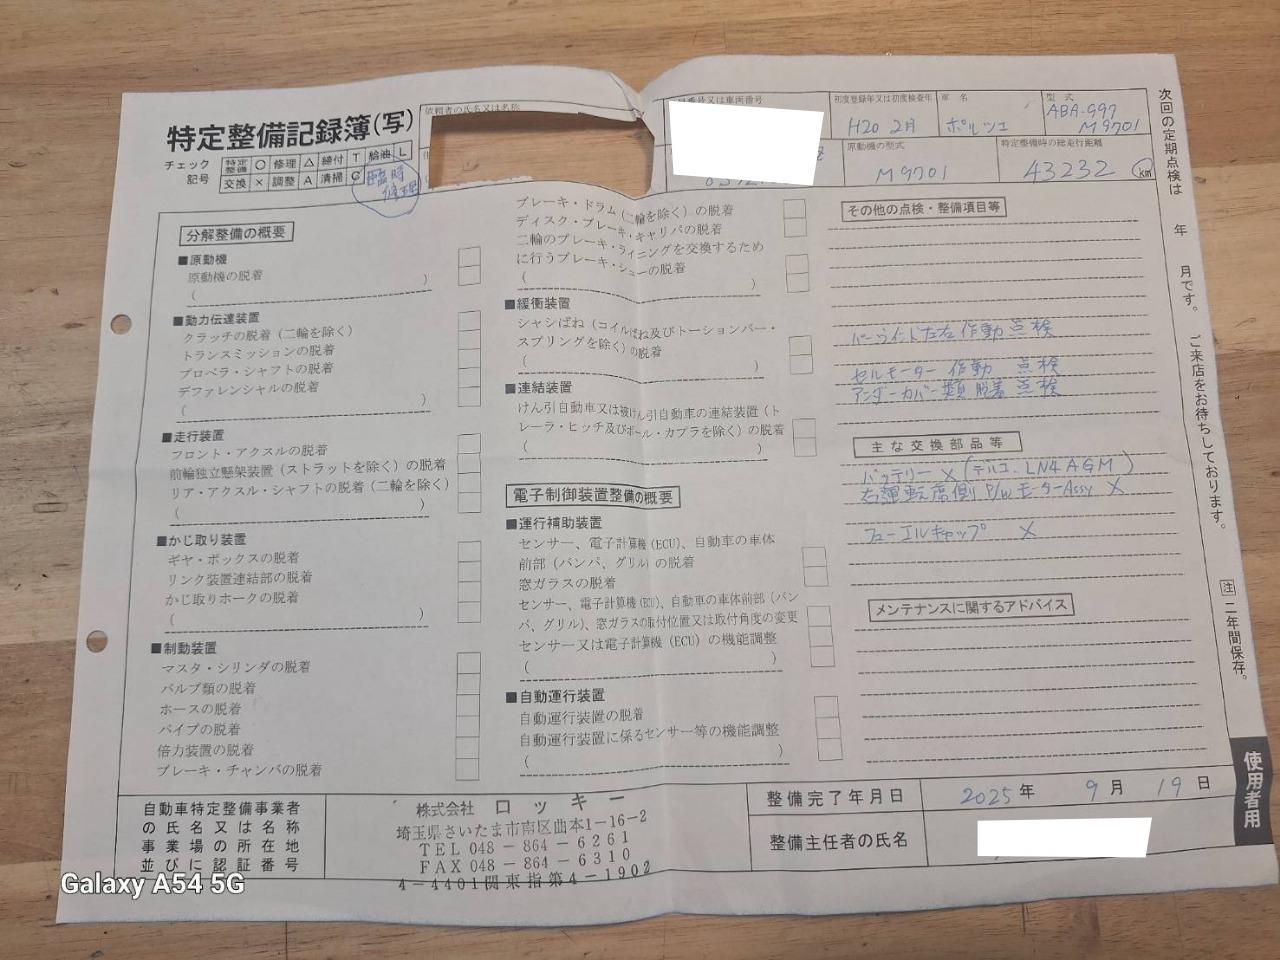 特定整備記録簿(写)
チェック記号
特定整備 ○ 修理 △ 締付 T 給油 L
交換 × 調整 A 清掃 C
臨時
依頼者の氏名又は名称
番号又は車両番号
初度登録年又は初度検査年
H20 2月
車名
ポルシェ
型式
ABA-997
M9701
原動機の型式
M9701
特定整備時の総走行距離
43232 km
分解整備の概要
■原動機
原動機の脱着
( )
■動力伝達装置
クラッチの脱着(二輪を除く)
トランスミッションの脱着
プロペラ・シャフトの脱着
デファレンシャルの脱着
( )
■走行装置
フロント・アクスルの脱着
前輪独立懸架装置(ストラットを除く)の脱着
リア・アクスル・シャフトの脱着(二輪を除く)
( )
■かじ取り装置
ギヤ・ボックスの脱着
リンク装置連結部の脱着
かじ取りホークの脱着
( )
■制動装置
マスタ・シリンダの脱着
バルブ類の脱着
ホースの脱着
パイプの脱着
倍力装置の脱着
ブレーキ・チャンバの脱着
ブレーキ・ドラム(二輪を除く)の脱着
ディスク・ブレーキ・キャリパの脱着
二輪のブレーキ・ライニングを交換するため
に行うブレーキ・シューの脱着
( )
■緩衝装置
シャシばね(コイルばね及びトーションバー・
スプリングを除く)の脱着
( )
■連結装置
けん引自動車又は被けん引自動車の連結装置(ト
レーラ・ヒッチ及びボール・カプラを除く)の脱着
( )
電子制御装置整備の概要
■運行補助装置
センサー、電子計算機(ECU)、自動車の車体
前部(バンパ、グリル)の脱着
窓ガラスの脱着
センサー、電子計算機(ECU)、自動車の車体前部(バン
パ、グリル)、窓ガラスの取付位置又は取付角度の変更
センサー又は電子計算機(ECU)の機能調整
( )
■自動運行装置
自動運行装置の脱着
自動運行装置に係るセンサー等の機能調整
( )
その他の点検・整備項目等
パーウインド左右 作動 点検
セルモーター 作動 点検
アンダーカバー類 脱着 点検
主な交換部品等
バッテリー × (デルコ. LN4 AGM)
右運転席側 P/Wモーター Assy ×
フューエルキャップ ×
メンテナンスに関するアドバイス
次回の定期点検は 年 月です。ご来店をお待ちしております。
注 二年間保存。
使用者用
自動車特定整備事業者
の氏名又は名称
事業場の所在地
並びに認証番号
株式会社 ロッキー
埼玉県さいたま市南区曲本1-16-2
TEL 048-864-6261
FAX 048-864-6310
4-4401関東指第4-1902
整備完了年月日
2025年 9月 19日
整備主任者の氏名
Galaxy A54 5G